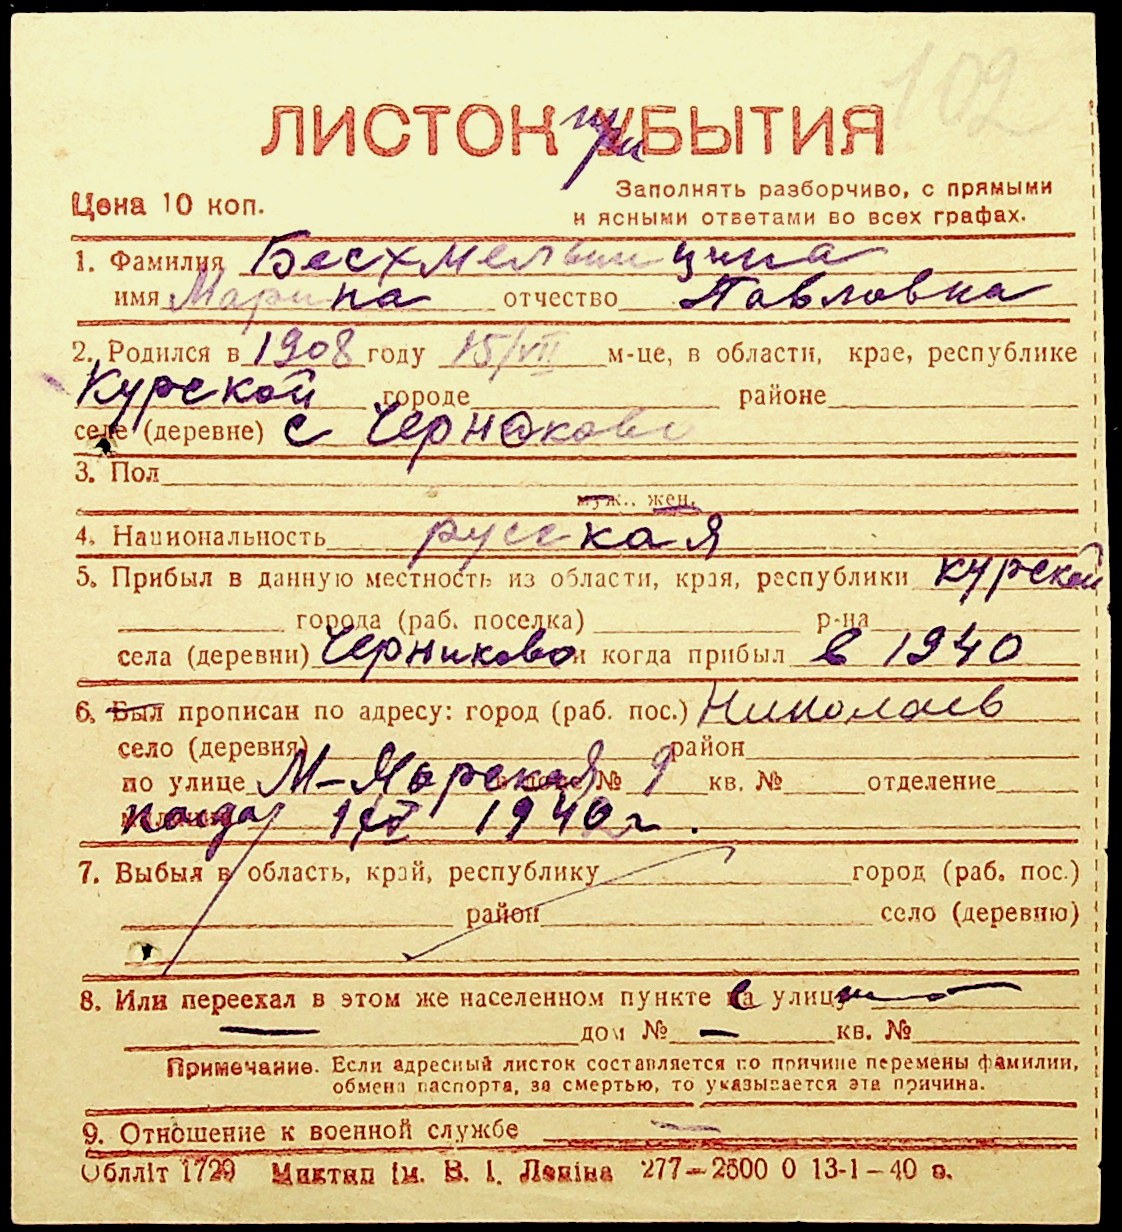 102
ЛИСТОК УБЫТИЯ
при
Цена 10 коп.
Заполнять разборчиво, с прямыми
и ясными ответами во всех графах.
1. Фамилия Бесхмельницина
имя Марина отчество Павловна
2. Родился в 1908 году 15/VII м-це, в области, крае, республике
Курской городе районе
селе (деревне) с Черняково
3. Пол
муж., жен.
4. Национальность русская
5. Прибыл в данную местность из области, края, республики Курской
города (раб. поселка) р-на
села (деревни) Черниково и когда прибыл в 1940
6. Был прописан по адресу: город (раб. пос.) Николаев
село (деревня) район
по улице М-Морская № 9 кв. № отделение
когда 1940 г.
7. Выбыл в область, край, республику город (раб. пос.)
район село (деревню)
8. Или переехал в этом же населенном пункте на улицу
дом № — кв. №
Примечание. Если адресный листок составляется по причине перемены фамилии,
обмена паспорта, за смертью, то указывается эта причина.
9. Отношение к военной службе —
Облліт 1729 Миктип ім. В. І. Леніна 277—2500 0 13-1—40 в.